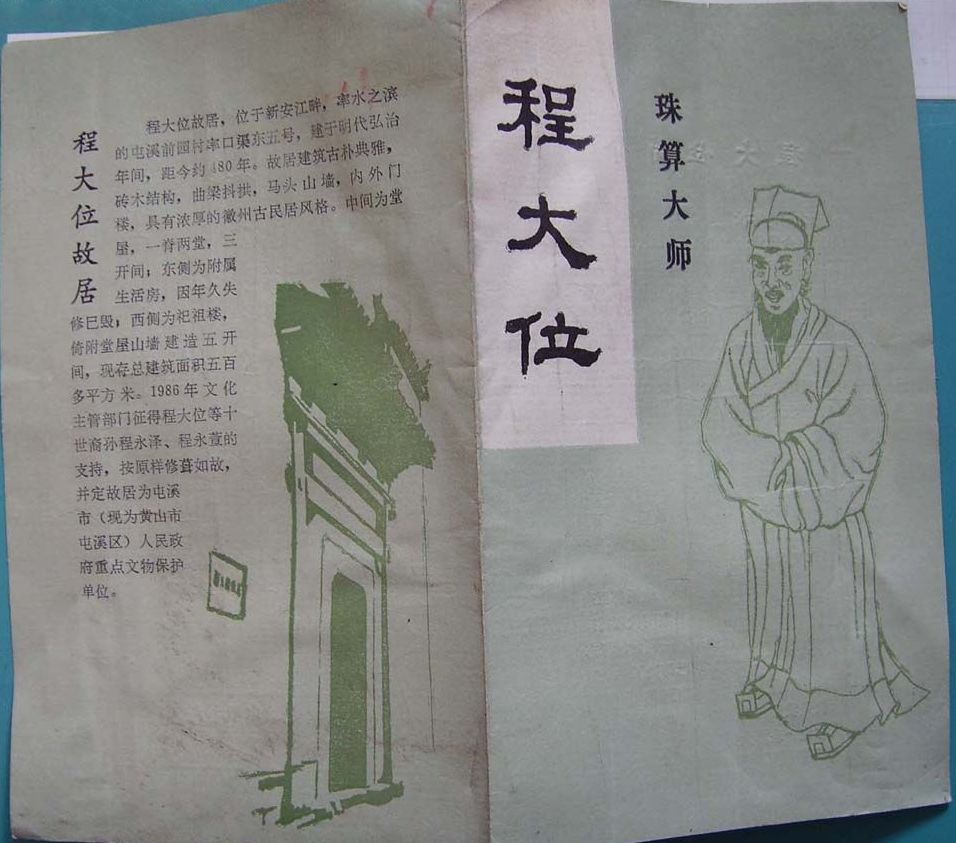 程大位故居
程大位故居，位于新安江畔，率水之滨
的屯溪前园村率口渠东五号，建于明代弘治
年间，距今约480年。故居建筑古朴典雅，
砖木结构，曲梁抖拱，马头山墙，内外门
楼，具有浓厚的徽州古民居风格。中间为堂
屋，一脊两堂，三
开间；东侧为附属
生活房，因年久失
修已毁；西侧为祀祖楼，
倚附堂屋山墙建造五开
间，现存总建筑面积五百
多平方米。1986年文化
主管部门征得程大位等十
世裔孙程永泽、程永萱的
支持，按原样修葺如故，
并定故居为屯溪
市（现为黄山市
屯溪区）人民政
府重点文物保护
单位。
程大位
珠算大师